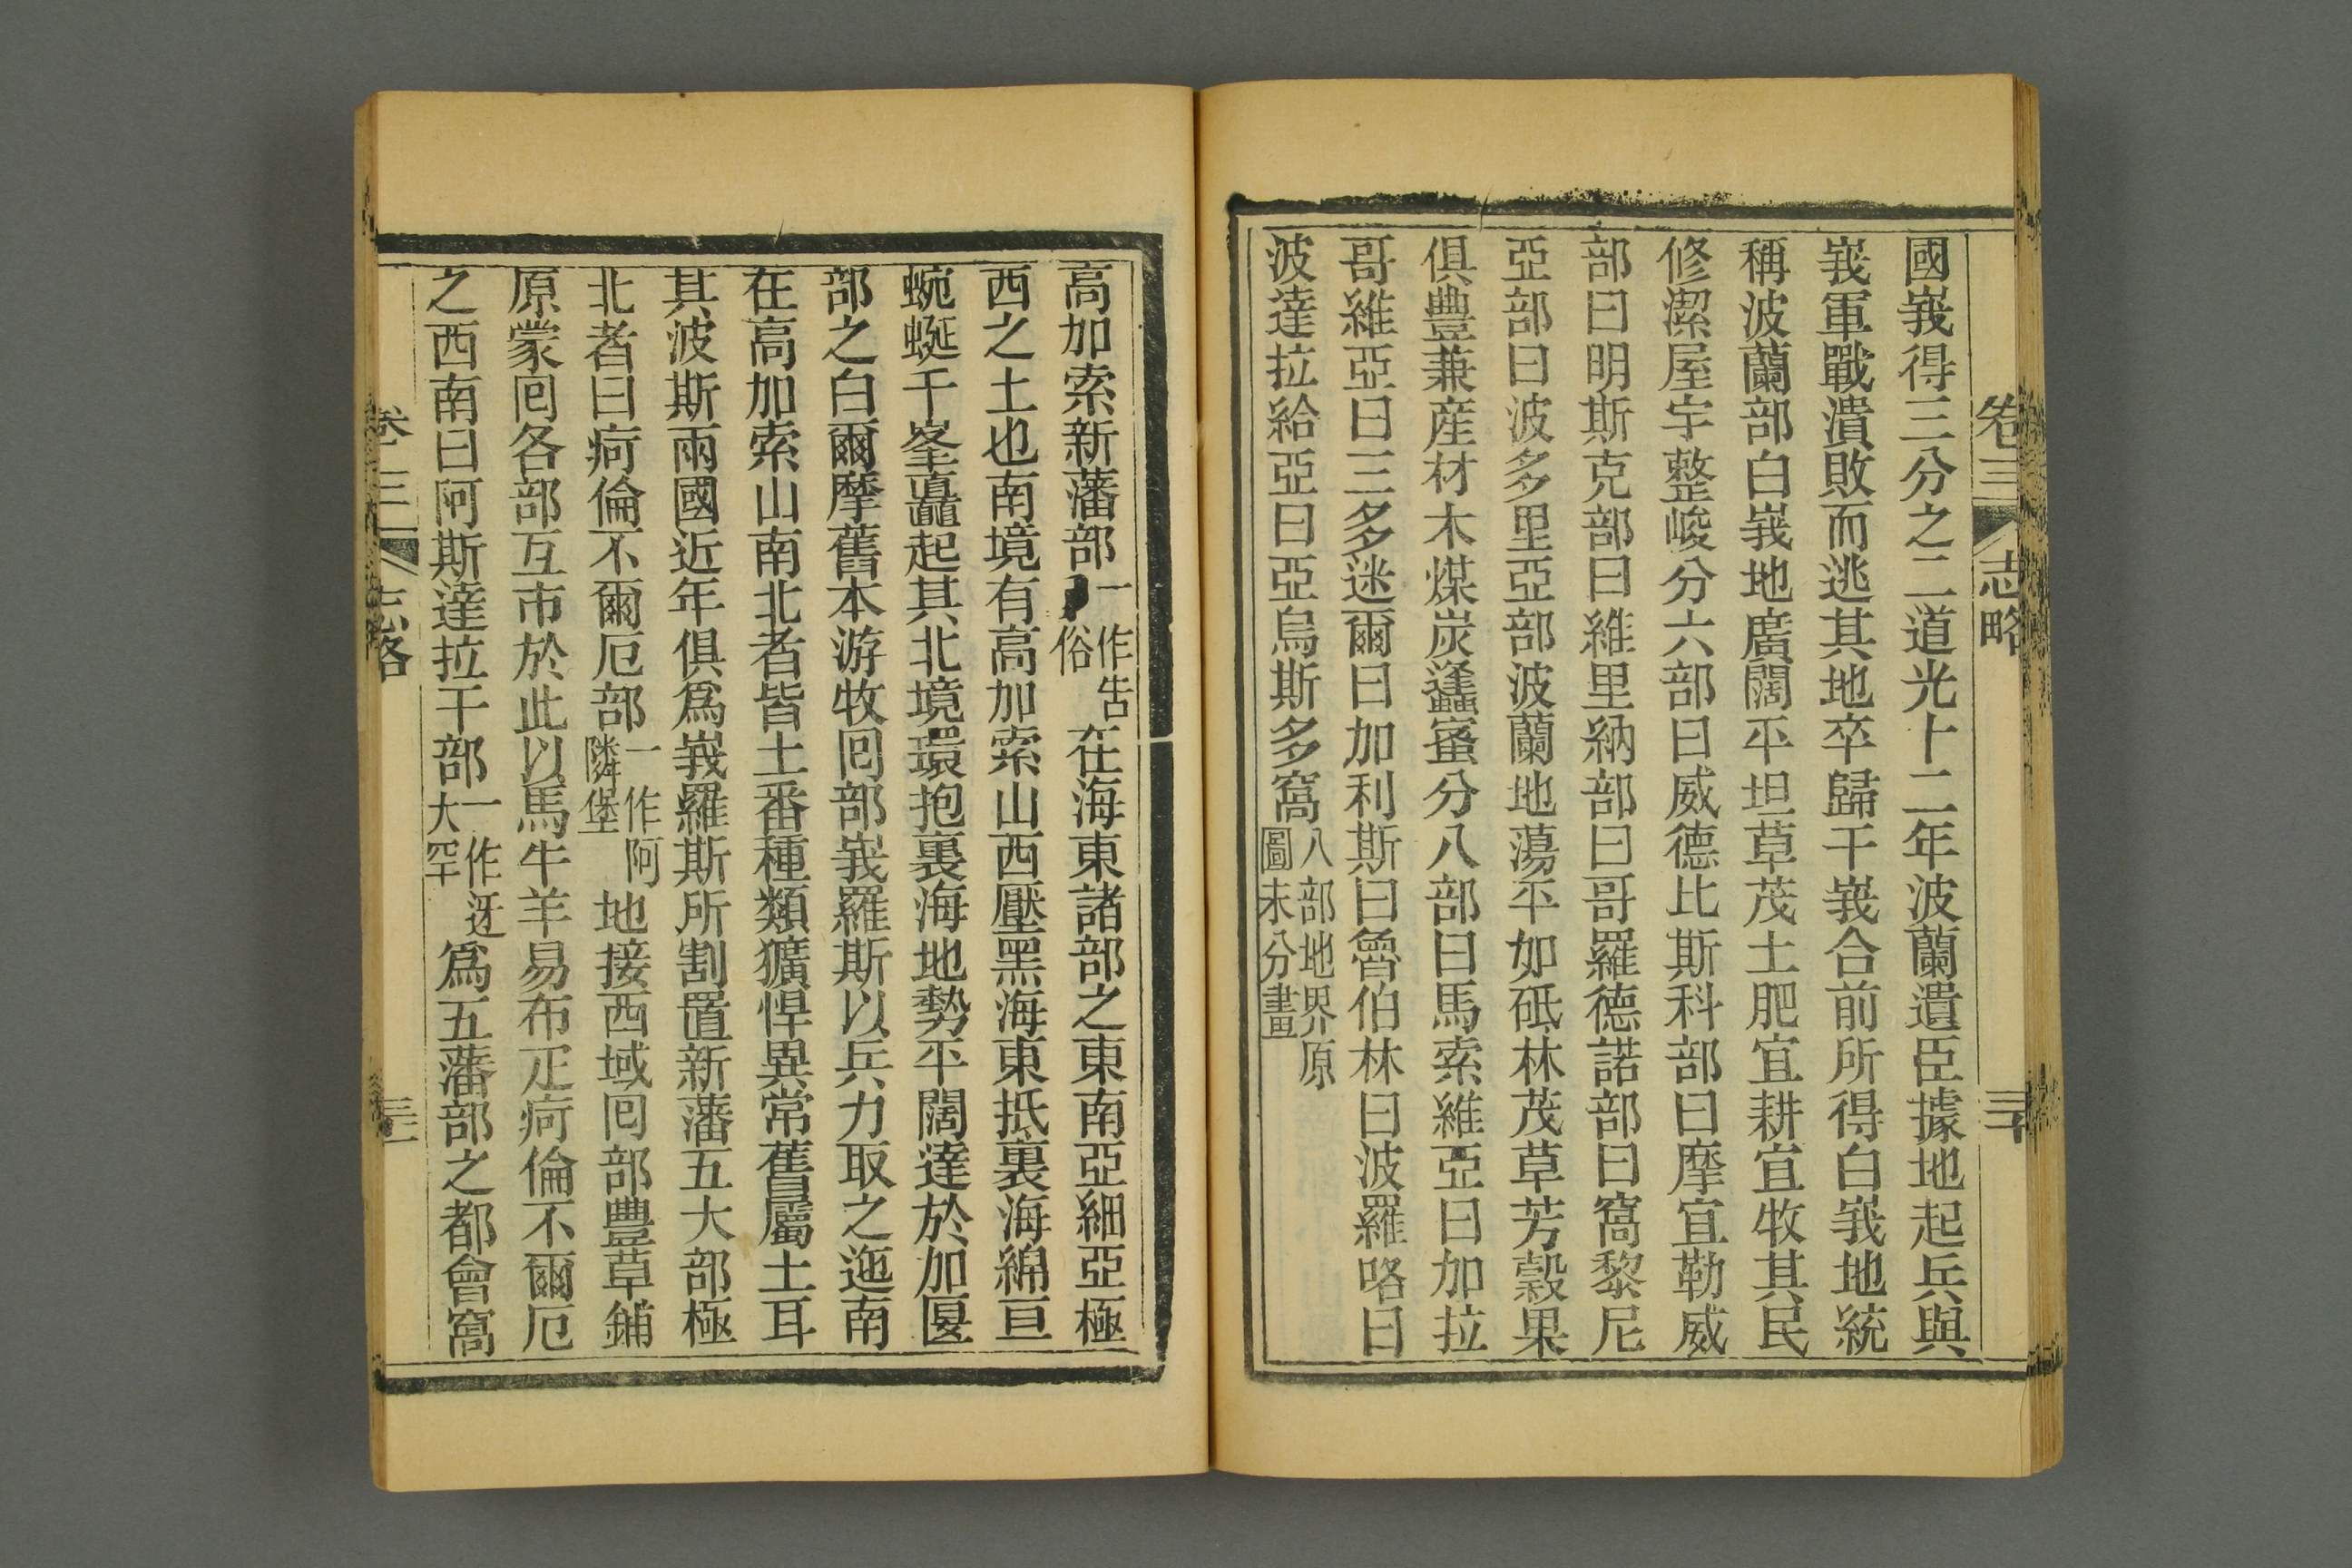 卷三 志略 三十
國峩得三分之二道光十二年波蘭遺臣據地起兵與
峩軍戰潰敗而逃其地卒歸于峩合前所得白峩地統
稱波蘭部白峩地廣闊平坦草茂土肥宜耕宜牧其民
修潔屋宇整峻分六部曰威德比斯科部曰摩宜勒威
部曰明斯克部曰維里納部曰哥羅德諾部曰窩黎尼
亞部曰波多里亞部波蘭地蕩平如砥林茂草芳穀果
俱豐兼産材木煤炭蠭蜜分八部曰馬索維亞曰加拉
哥維亞曰三多迷爾曰加利斯曰魯伯林曰波羅咯曰
波達拉給亞曰亞烏斯多窩八部地界原圖未分畫
高加索新藩部一作吿俗在海東諸部之東南亞細亞極
西之土也南境有高加索山西壓黑海東抵裏海綿亘
蜿蜒千峯矗起其北境環抱裏海地勢平闊達於加匽
部之白爾摩舊本游牧囘部峩羅斯以兵力取之迤南
在高加索山南北者皆土番種類獷悍異常舊屬土耳
其波斯兩國近年俱爲峩羅斯所割置新藩五大部極
北者曰疴倫不爾厄部一作阿隣堡地接西域囘部豐草鋪
原蒙囘各部互市於此以馬牛羊易布疋疴倫不爾厄
之西南曰阿斯達拉干部一作迓大罕爲五藩部之都會窩
卷三 志略 三十一